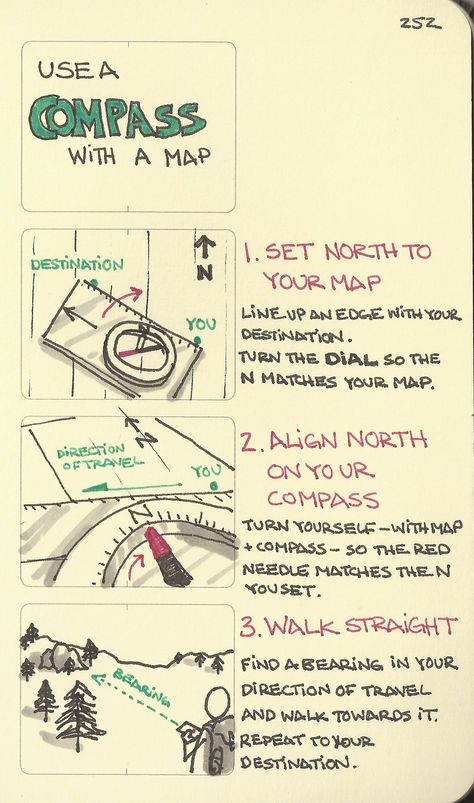 252
USE A
COMPASS
WITH A MAP
DESTINATION
N
YOU
N
1. SET NORTH TO
YOUR MAP
LINE UP AN EDGE WITH YOUR
DESTINATION.
TURN THE DIAL SO THE
N MATCHES YOUR MAP.
N
DIRECTION
OF TRAVEL
YOU
N
2. ALIGN NORTH
ON YOUR
COMPASS
TURN YOURSELF - WITH MAP
+ COMPASS - SO THE RED
NEEDLE MATCHES THE N
YOU SET.
BEARING
3. WALK STRAIGHT
FIND A BEARING IN YOUR
DIRECTION OF TRAVEL
AND WALK TOWARDS IT.
REPEAT TO YOUR
DESTINATION.